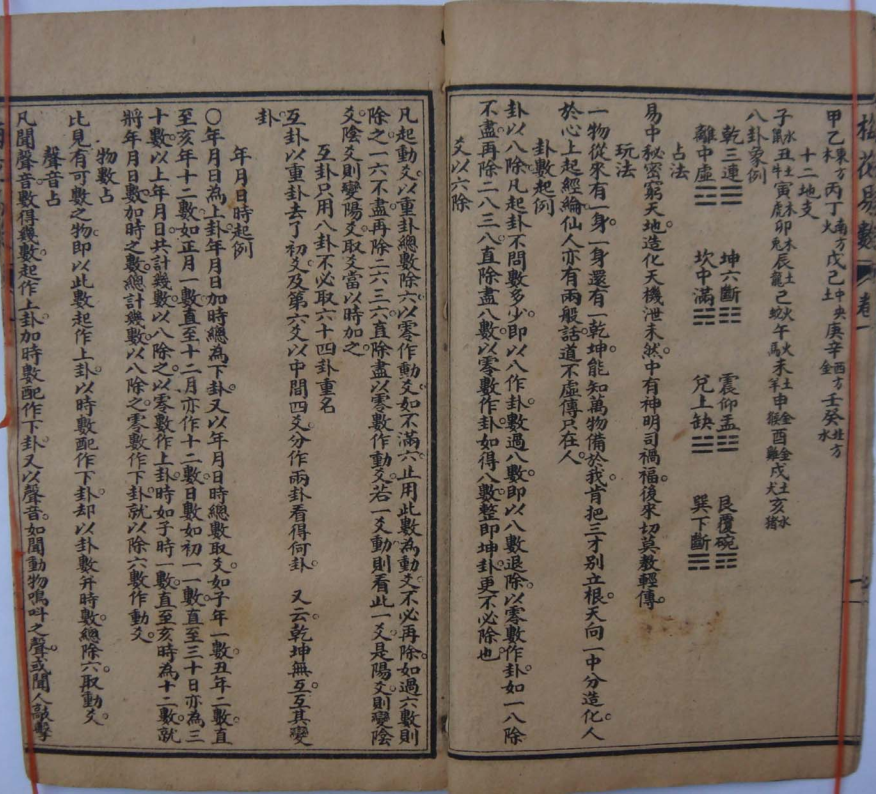 梅花易數 卷一
甲乙東方木丙丁南方火戊己中央土庚辛西方金壬癸北方水
十二地支
子水鼠丑土牛寅木虎卯木兔辰土龍巳火蛇午火馬未土羊申金猴酉金雞戌土犬亥水猪
八卦象例
乾三連☰ 坤六斷☷ 震仰盂☳ 艮覆碗☶
離中虛☲ 坎中滿☵ 兌上缺☱ 巽下斷☴
占法
易中秘密窮天地。造化天機泄未然。中有神明司禍福。後來切莫教輕傳。
玩法
一物從來有一身。一身還有一乾坤。能知萬物備於我。肯把三才别立根。天向一中分造化。人
於心上起經綸。仙人亦有兩般話。道不虛傳只在人。
卦數起例
卦以八除。凡起卦不問數多少。即以八作卦數。過八數。即以八數退除。以零數作卦。如一八除
不盡。再除二八三八。直除盡八數。以零數作卦。如得八數整。即坤卦。更不必除也。
爻以六除
凡起動爻。以重卦總數除六。以零作動爻。如不滿六。止用此數為動爻。不必再除。如過六數。則
除之。一六不盡。再除二六三六。直除盡。以零數作動爻。若一爻動。則看此一爻。是陽爻。則變陰
爻。陰爻則變陽爻。取爻當以時加之。
互卦只用八卦。不必取六十四卦重名
互卦以重卦去了初爻及第六爻。以中間四爻。分作兩卦。看得何卦。 又云。乾坤無互。互其變
卦。
年月日時起例
○年月日為上卦。年月日加時總為下卦。又以年月日時總數取爻。如子年一數。丑年二數。直
至亥年十二數。如正月一數。直至十二月。亦作十二數。日數如初一一數。直至三十日。亦為三
十數。以上年月日共計幾數。以八除之。以零數作上卦。時如子時一數。直至亥時為十二數。就
將年月日數加時之數。總計幾數。以八除之。零數作下卦。就以除六數作動爻。
物數占
此見有可數之物。即以此數起作上卦。以時數配作下卦。却以卦數并時數。總除六。取動爻。
聲音占
凡聞聲音。數得幾數。起作上卦。加時數配作下卦。又以聲音。如聞動物鳴叫之聲。或聞人敲擊